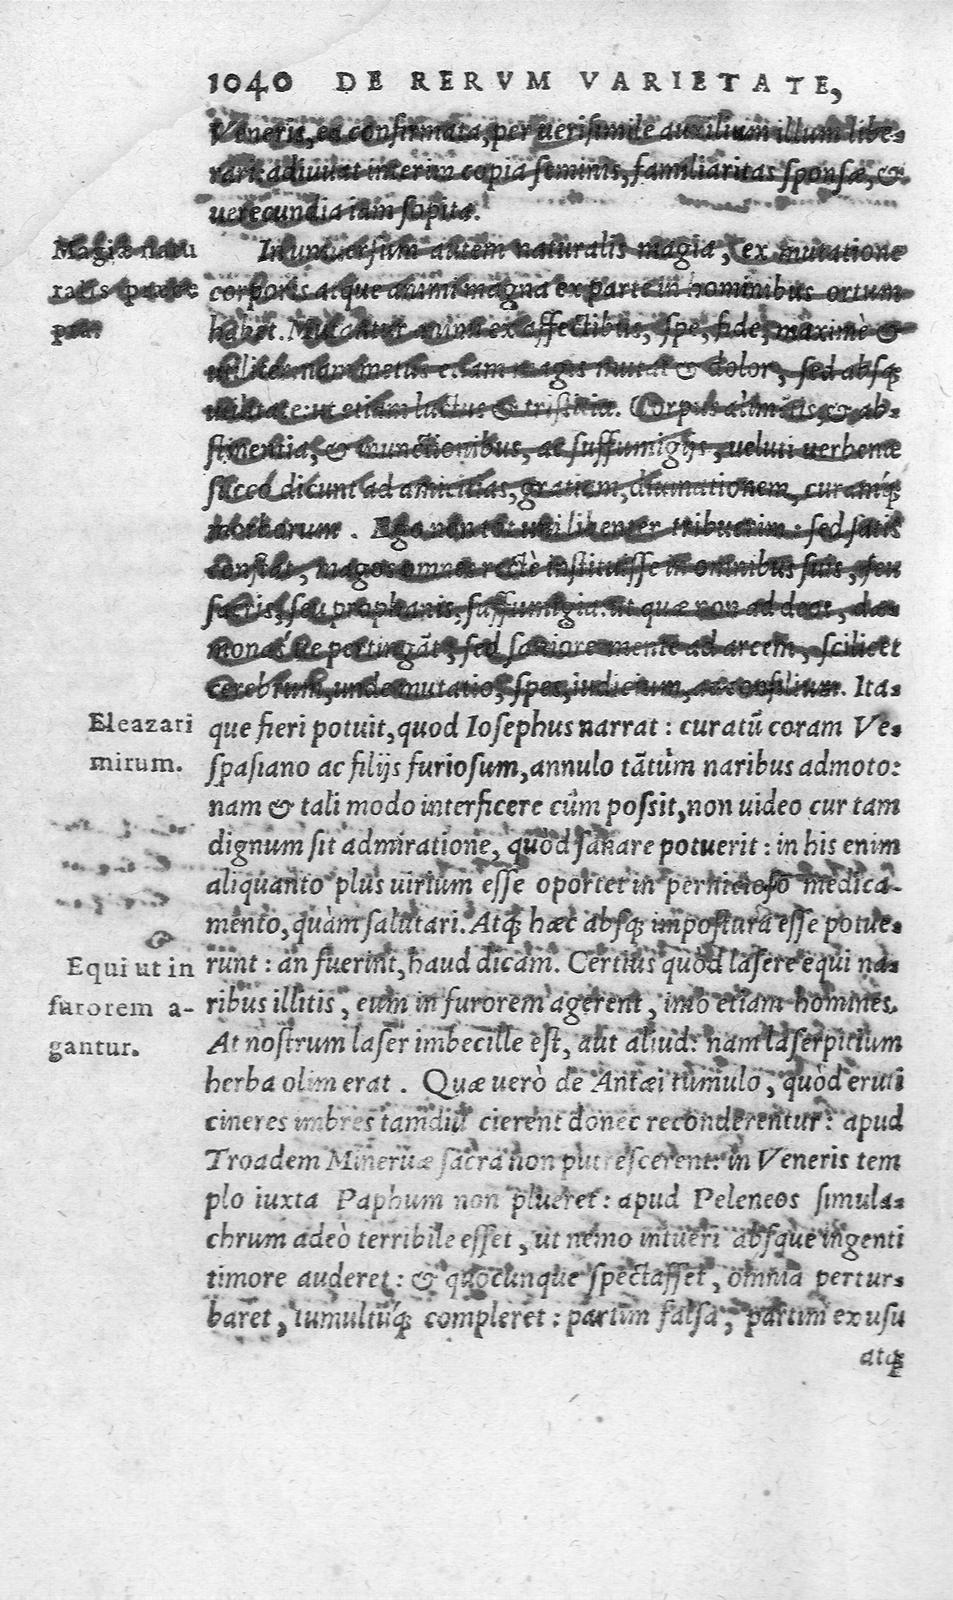 1040 DE RERVM VARIETATE,
Veneris, ea confirmata, per uerisimile auxilium illum libe-
rari: adiuuat interim copia seminis, familiaritas sponsæ, &
uerecundia iam sopita.
Magiæ natu
ralis præce
pta.
In uniuersum autem naturalis magia, ex mutatione
corporis atque animi magna ex parte in hominibus ortum
habet. Mutantur animi ex affectibus, spe, fide, maximè &
utiliter: nam metus etiam magis mutat & dolor, sed absq;
utilitate: ut etiam luctus & tristicia. Corpus alimētis, & ab-
stinentia, & inunctionibus, ac suffumigijs, ueluti uerbenæ
succo dicunt ad amicitias, gratiam, diuinationem, curamq́;
morborum. Ego non tot uni libenter tribuerim: sed satis
constat, magos omnes rectè instituisse in omnibus suis, seu
sacris, seu prophanis, suffumigia: ut quæ non ad deos, dæ-
monas ue pertingāt, sed saniore mente ad arcem, scilicet
cerebrum, unde mutatio, spes, iudicium, ac consilium. Ita-
Eleazari
mirum.
que fieri potuit, quod Iosephus narrat: curatū coram Ve-
spasiano ac filijs furiosum, annulo tātùm naribus admoto:
nam & tali modo interficere cūm possit, non uideo cur tam
dignum sit admiratione, quòd sanare potuerit: in his enim
aliquanto plus uirium esse oportet in pernicioso medica-
mento, quàm salutari. Atq; hæc absq; impostura esse potue-
Equi ut in
furorem a-
gantur.
runt: an fuerint, haud dicam. Certius quòd lasere equi na-
ribus illitis, eum in furorem agerent, imò etiam homines.
At nostrum laser imbecille est, aut aliud: nam laserpitium
herba olim erat. Quæ uerò de Antæi tumulo, quòd eruti
cineres imbres tamdiu cierent donec reconderentur: apud
Troadem Mineruæ sacra non putrescerent: in Veneris tem
plo iuxta Paphum non plueret: apud Peleneos simula-
chrum adeò terribile esset, ut nemo intueri absque ingenti
timore auderet: & quocunque spectasset, omnia pertur-
baret, tumultuq́; compleret: partim falsa, partim ex usu
atq;